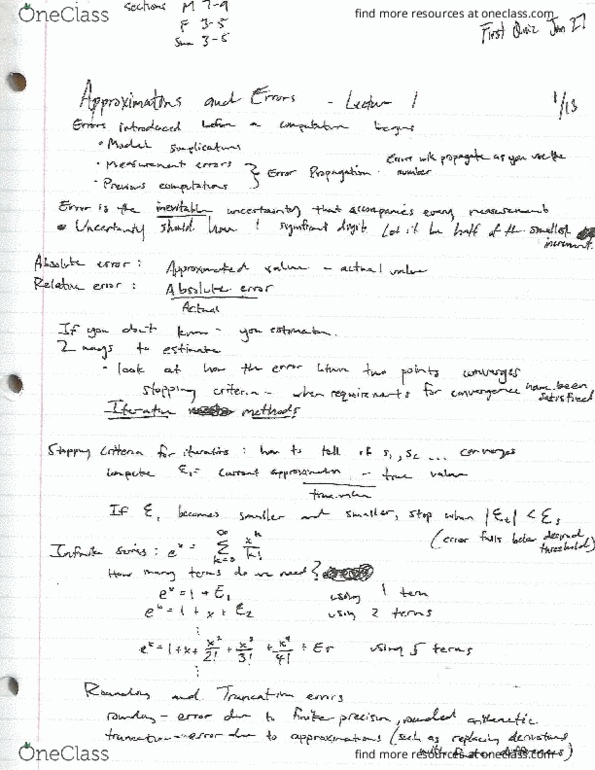 OneClass
find more resources at oneclass.com
sections M 7-9
F 3-5
3-5
First Quiz Jan 27
Approximations and Errors - Lecture 1
1/13
Errors introduced before a computation begins
• Model simplications
• Measurement errors
• Previous computations
} Error Propagation.
Errors will propagate as you use the number
Error is the inevitable uncertainty that accompanies every measurement
• Uncertainty should have 1 significant digit. Let it be half of the smallest increment.
Absolute error: Approximated value - actual value
Relative error: Absolute error
Actual
If you don't know - you estimation.
2 ways to estimate
• look at how the error between two points converges
stopping criteria - when requirements for convergence have been satisfied
Iterative methods
Stopping Criteria for iterations: how to tell if s₁, s₂ ... converges
compute ε₁ = current approximation - true value
true value
If ε, becomes smaller and smaller, stop when |εt| < εs
(error falls below desired threshold)
Infinite series: eˣ = ∞ Σ k=0 xᵏ/k!
How many terms do we need?
eˣ = 1 + E₁ using 1 term
eˣ = 1 + x + E₂ using 2 terms
⋮
eˣ = 1 + x + x²/2! + x³/3! + x⁴/4! + E₅ using 5 terms
⋮
Rounding and Truncation errors
rounding - error due to finite precision, rounded arithmetic
truncation - error due to approximations (such as replacing derivatives
with differences)
OneClass
find more resources at oneclass.com